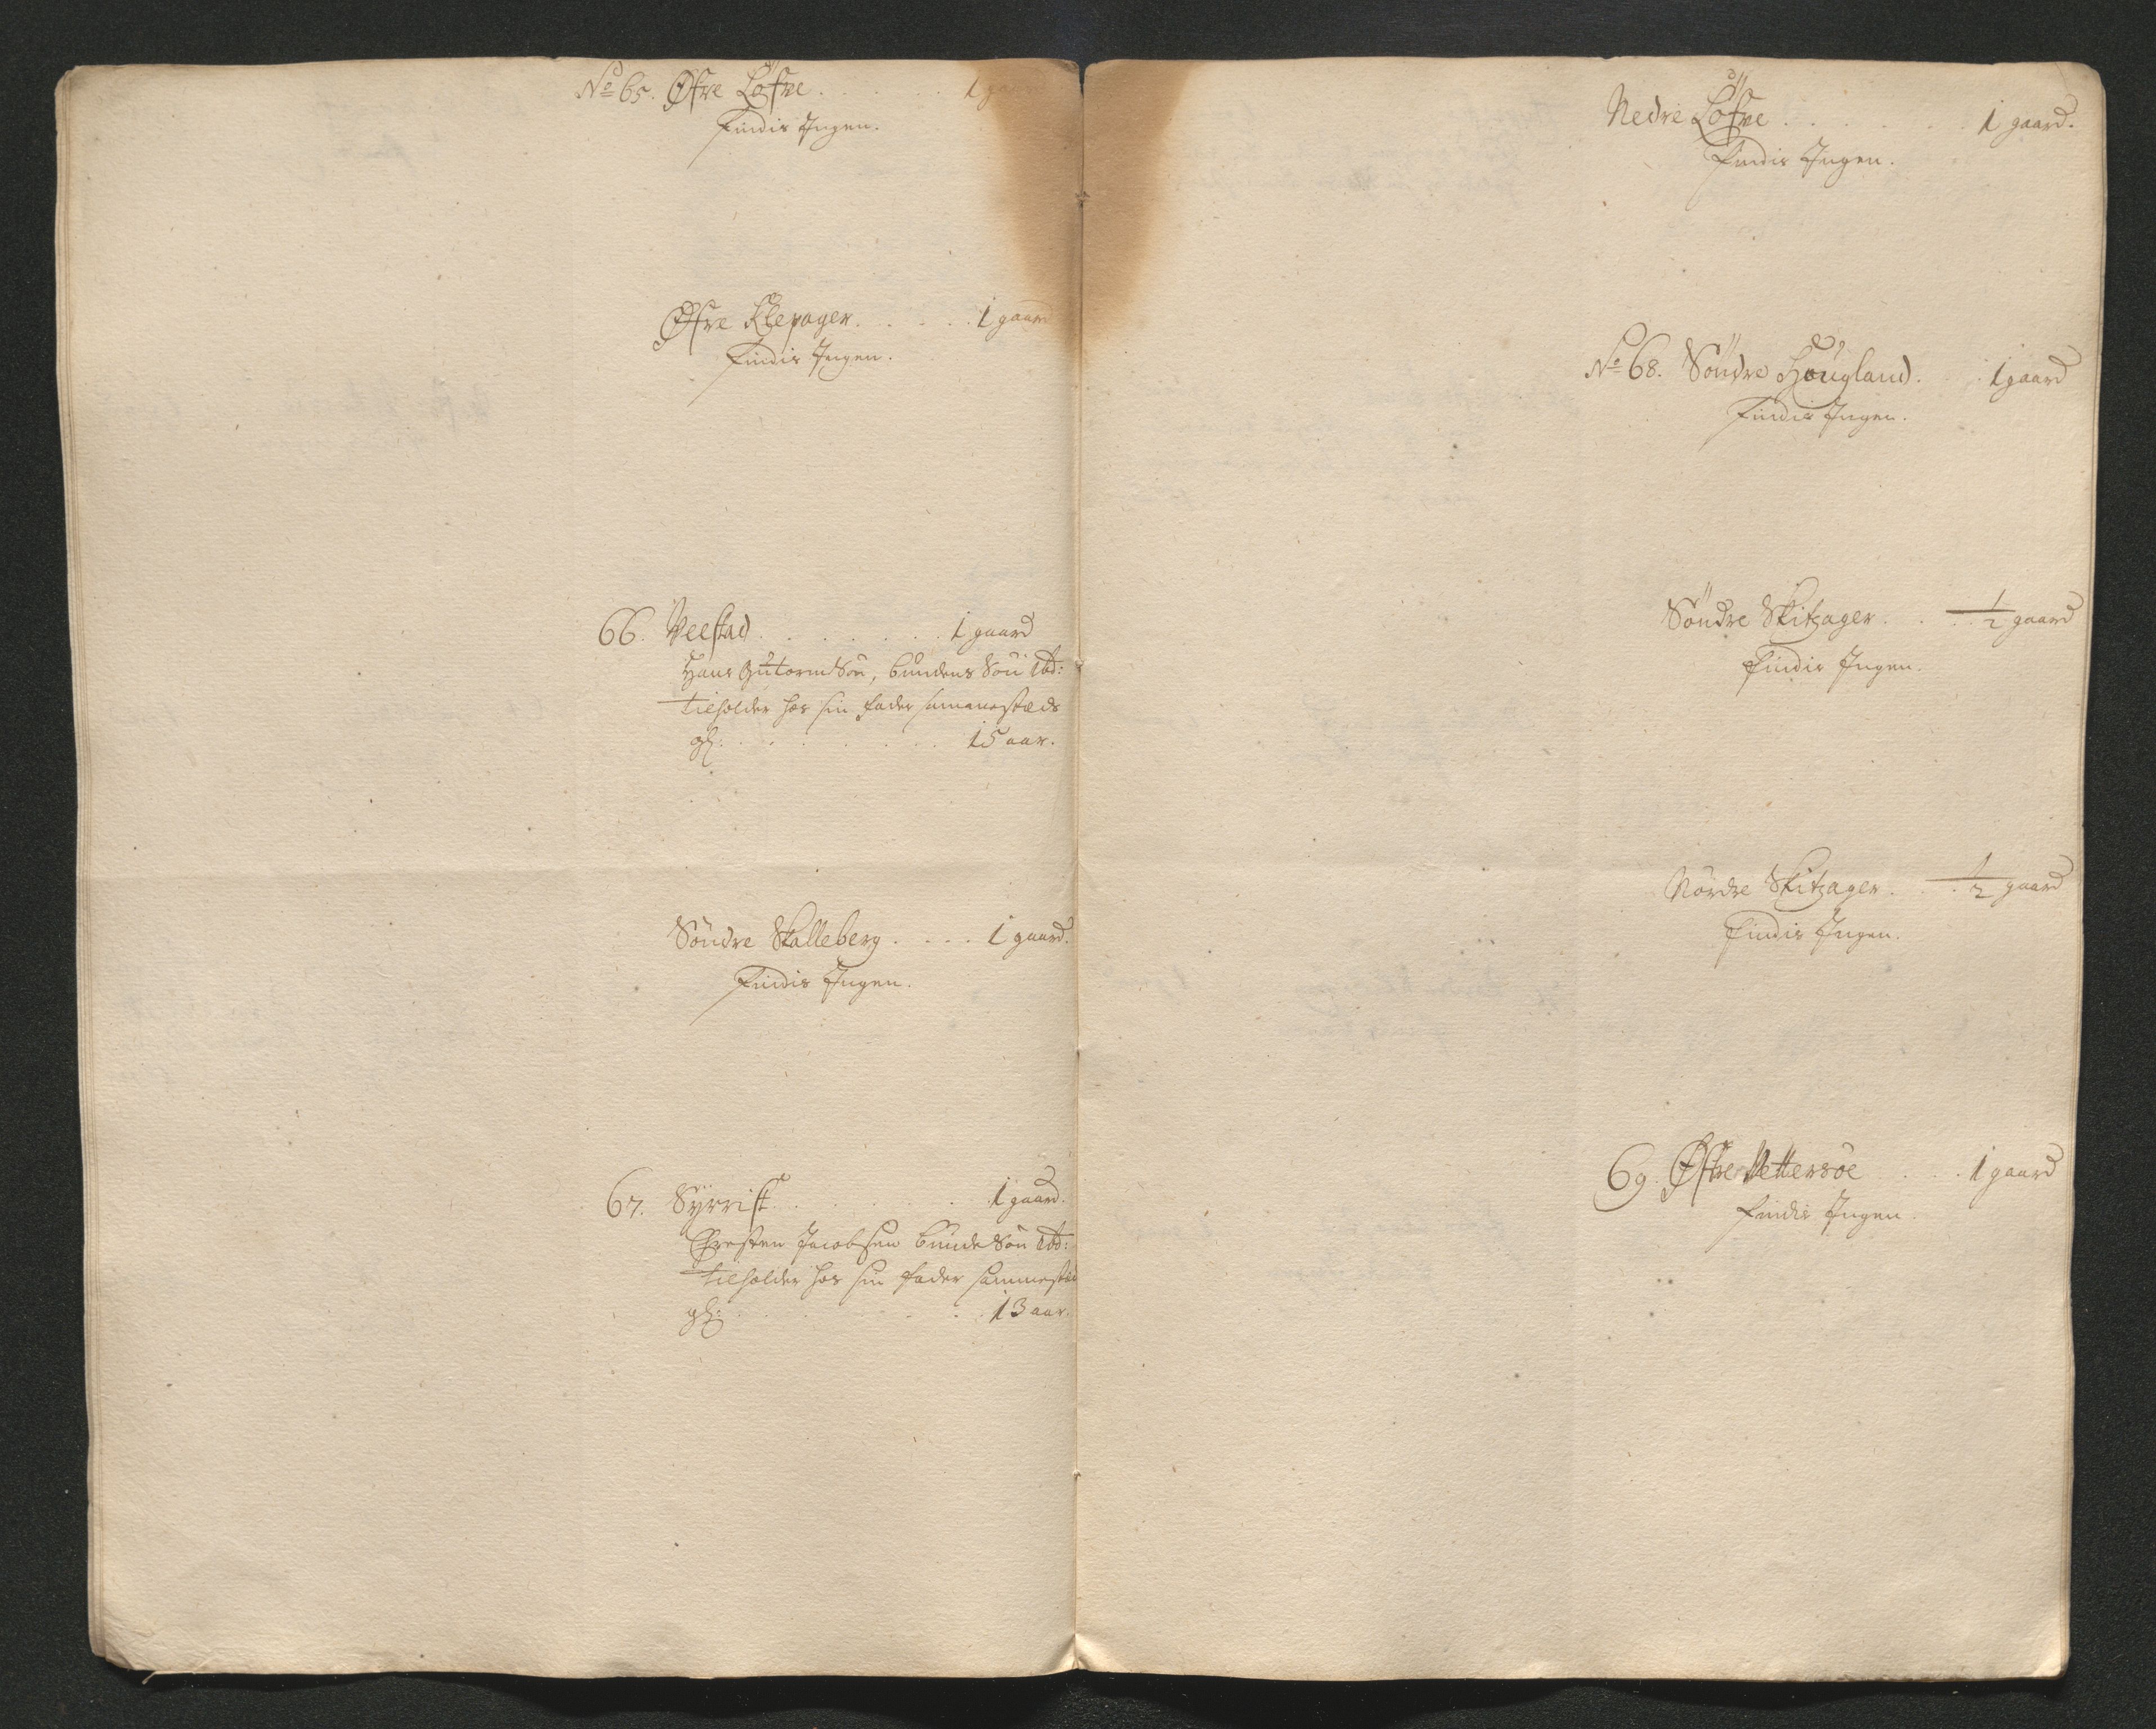 No 65. Øfre Løfve . . . . . . 1 ga
Findis Ingen.
Øfre Klepager. . . . . . 1 gaard
Findis Ingen.
66. Veestad . . . . . . . 1 gaard
Hans GutormSøn, bundens Søn ibd:
tilholder hos sin fader sammesteds
gl: . . . . . . . . 15 aar.
Søndre Skalleberg . . . . 1 gaard.
Findis Ingen.
67. Syrrist . . . . . . . 1 gaard.
Chresten Jacobsen bundeSøn ibd:
tilholder hos sin fader sammested
gl: . . . . . . . . 13 aar.
Nedre Løfve . . . . . . . 1 gaard.
Findis Ingen.
No 68. Søndre Hougland. . . 1 gaard
Findis Ingen.
Søndre Skitzager. . . 1/2 gaard
Findis Ingen.
Nordre Skitzager. . . 1/2 gaard
Findis Ingen.
69. Østre Vettersøe . . . 1 gaard
Findis Ingen.